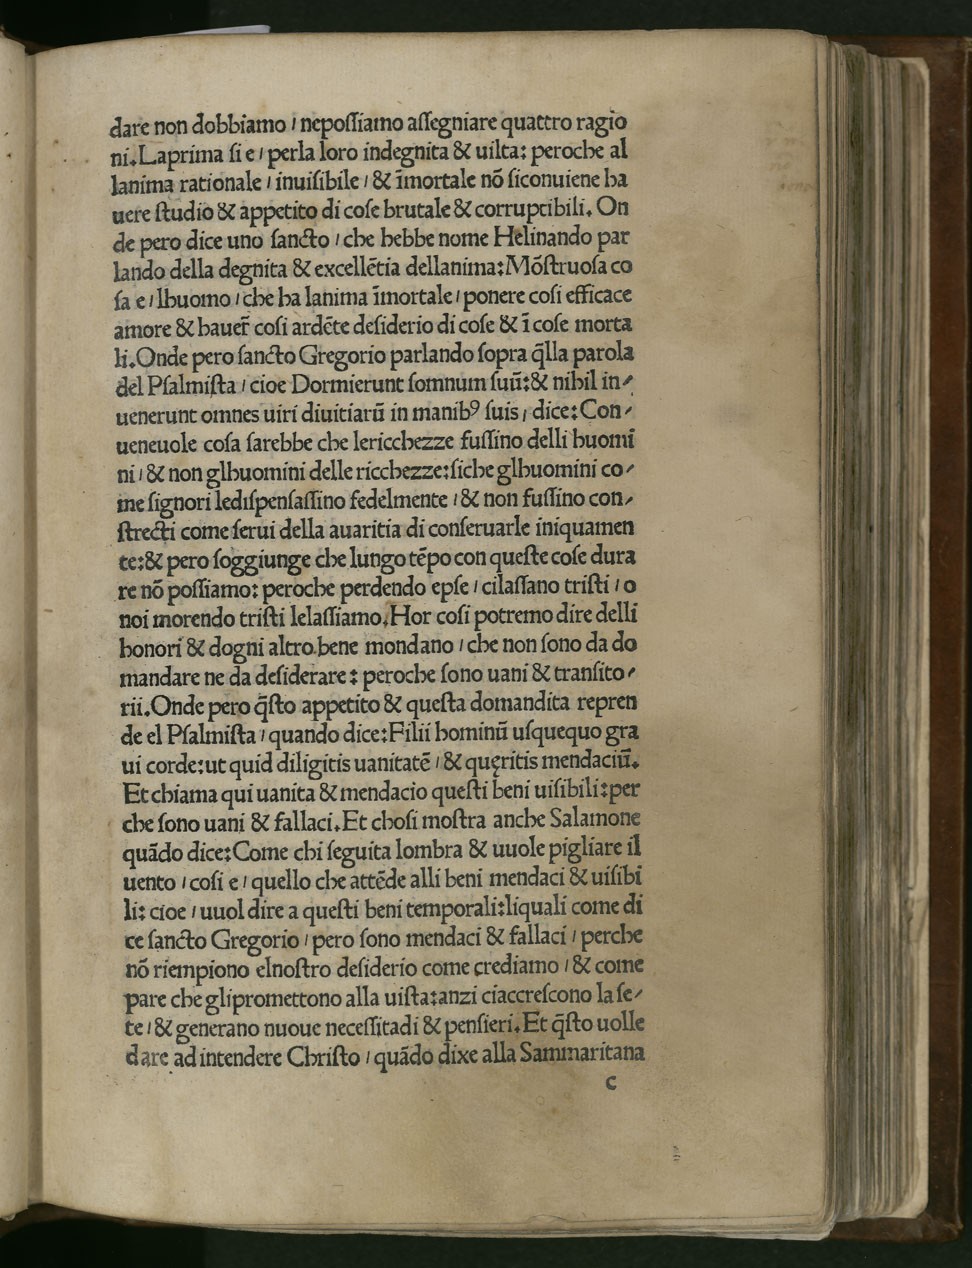 dare non dobbiamo / nepoſſiamo aſſegniare quattro ragio
ni. Laprima ſi e / perla loro indegnita & uilta: peroche al
lanima rationale / inuiſibile / & īmortale nō ſiconuiene ha
uere ſtudio & appetito di coſe brutale & corruptibili. On
de pero dice uno ſancto / che hebbe nome Helinando par
lando della degnita & excellētia dellanima: Mōſtruoſa co
ſa e / lhuomo / che ha lanima īmortale / ponere coſi efficace
amore & hauer̄ coſi ardēte deſiderio di coſe & ī coſe morta
li. Onde pero ſancto Gregorio parlando ſopra q̄lla parola
del Pſalmiſta / cioe Dormierunt ſomnum ſuū: & nihil in⸗
uenerunt omnes uiri diuitiarū in manibꝰ ſuis / dice: Con⸗
ueneuole coſa ſarebbe che lericchezze fuſſino delli huomi
ni / & non glhuomini delle ricchezze: ſiche glhuomini co⸗
me ſignori lediſpenſaſſino fedelmente / & non fuſſino con⸗
ſtrecti come ſerui della auaritia di conſeruarle iniquamen
te: & pero ſoggiunge che lungo tēpo con queſte coſe dura
re nō poſſiamo: peroche perdendo epſe / cilaſſano triſti / o
noi morendo triſti lelaſſiamo. Hor coſi potremo dire delli
honori & dogni altro bene mondano / che non ſono da do
mandare ne da deſiderare: peroche ſono uani & tranſito⸗
rii. Onde pero q̄ſto appetito & queſta domandita repren
de el Pſalmiſta / quando dice: Filii hominū uſquequo gra
ui corde: ut quid diligitis uanitatē / & quęritis mendaciū.
Et chiama qui uanita & mendacio queſti beni uiſibili: per
che ſono uani & fallaci. Et choſi moſtra anche Salamone
quādo dice: Come chi ſeguita lombra & uuole pigliare il
uento / coſi e / quello che attēde alli beni mendaci & uiſibi
li: cioe / uuol dire a queſti beni temporali: liquali come di
ce ſancto Gregorio / pero ſono mendaci & fallaci / perche
nō riempiono elnoſtro deſiderio come crediamo / & come
pare che glipromettono alla uiſta: anzi ciaccreſcono la ſe⸗
te / & generano nuoue neceſſitadi & penſieri. Et q̄ſto uolle
dare ad intendere Chriſto / quādo dixe alla Sammaritana
c